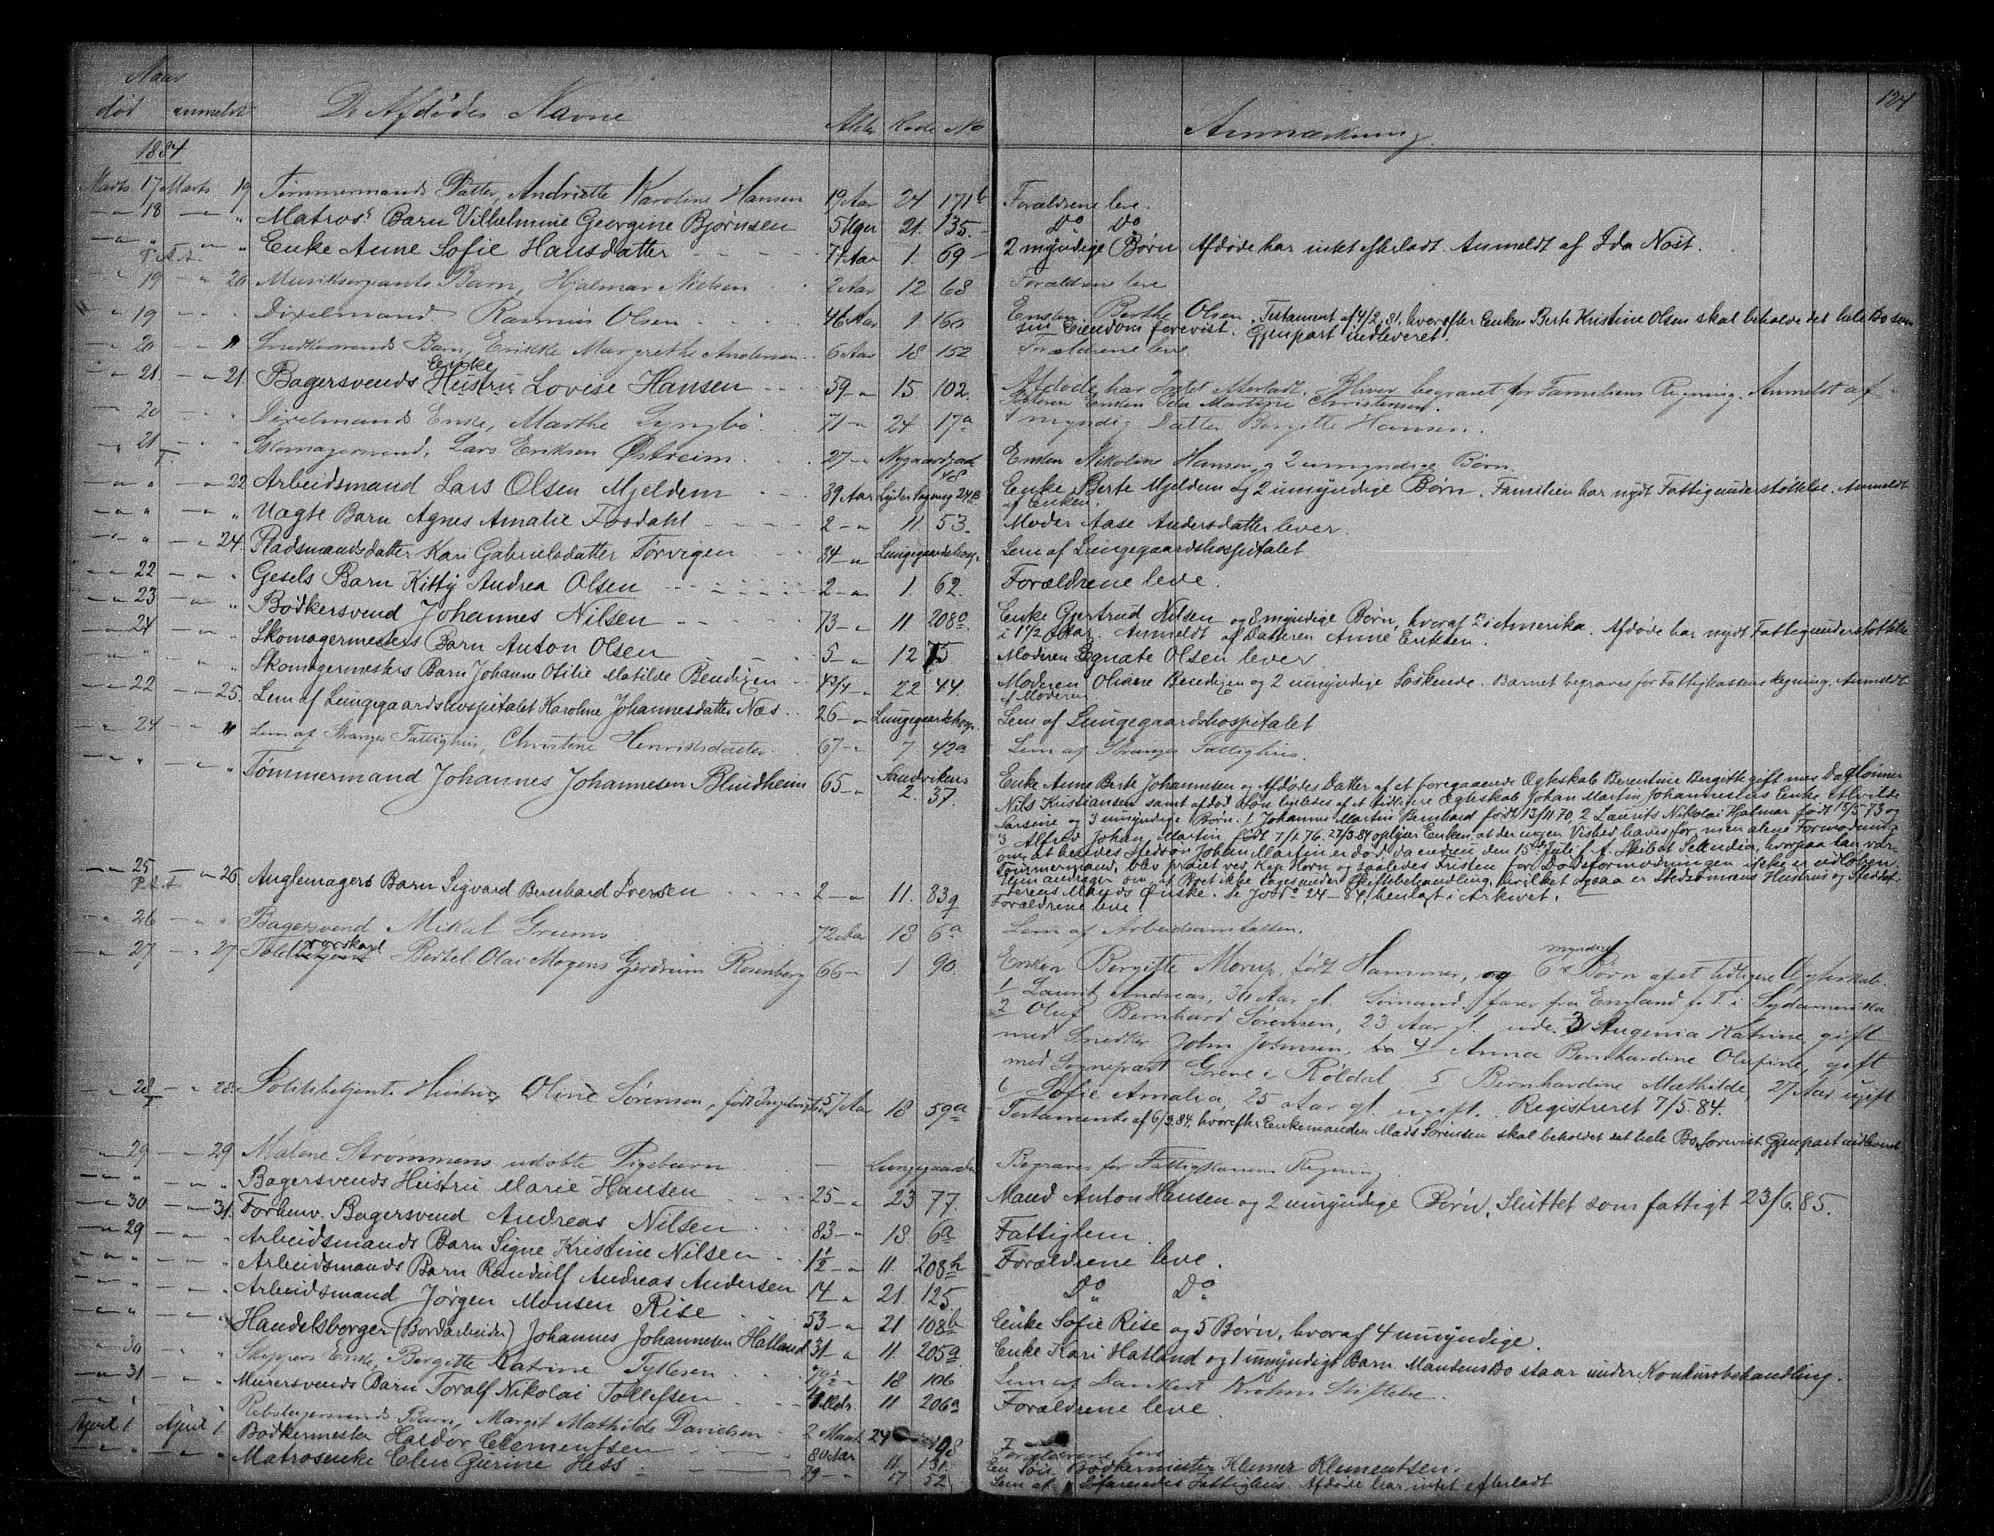 Naar
død anmeldt De Afdødes Navne Alder Rode No Anmærkning 124
1884
Marts 17 Marts 19 Tømmermands Datter, Andriette Karoline Hansen 19 Aar 24 171b Forældrene leve.
" 18 " " Matros's Barn Vilhelmine Georgine Bjørnsen 5 Uger 21. 135. Do Do
" " " " Enke Anne Sofie Hansdatter 77 Aar 1. 69 2 myndige Børn. Afdøde har intet efterladt. Anmeldt af Ida Nost.
" 19 " 20 Musiksergeants Barn, Hjalmar Nielsen 2 Aar 12 68 Forældrene leve
" 19 " " Dixelmand Rasmus Olsen 46 Aar 1 160 Enken Berthe Olsen. Testament af 4/2. 81, hvorefter Enken Berte Kristine Olsen skal beholde det hele Bo som
sin Eiendom. forevist. Gjenpart indleveret.
" 20 " " Snedkersvends Barn, Erikke Margrethe Andersen 6 Aar 18 152 Forældrene leve
" 21. " 21. Bagersvends Hustru Enke Lovise Hansen 59 " 15 102. Afdøde har Intet efterladt. Bliver begravet for Familiens Regning. Anmeldt af
Søsteren Enken Ida Martine Christensen.
" 20 " " Dixelmands Enke, Marthe Lyngbø 71 " 24 17a 1 myndig Datter Bergitte Hansen.
" 21. " " Skomagersvend, Lars Eriksen Østreim 27 " Nygaardsgad. 48 Enken Nikoline Hansen, og 2 umyndige Børn.
" " " 22 Arbeidsmand Lars Olsen Mjeldem 39 Aar 24B Enke Berte Mjeldem og 2 umyndige Børn. Familien har nydt Fattigunderstøttelse. Anmeldt
af Enken.
" " " " Uægte Barn Agnes Amalie Fosdahl 2 " 11. 53. Moder Aase Andersdatter lever.
" " " 24. Pladsmandsdatter Kari Gabrielsdatter Tørvigen 34 " Lungegaardshosp. Lem af Lungegaardshospitalet.
" 22 " " Gesels Barn Kitty Andrea Olsen 2 " 1. 62. Forældrene leve.
" 23 " " Bødkersvend Johannes Nilsen 73 " 11 208c Enke Gjertrud Nilsen og 8 myndige Børn, hvoraf 2 i Amerika. Afdøde har nydt Fattigunderstøttelse
i 1 1/2 Aar. Anmeldt af Datteren Anne Eriksen.
" 24 " " Skomagermesters Barn Anton Olsen 5 " 12 75 Moderen Egnate Olsen lever.
" " " " Skomagermesters Barn Johanne Otilie Matilde Bendixen 4 3/4 " 22 44. Moderen Olivere Bendixen og 2 umyndige Søskende. Barnet begraves for Fattigkassens Regning. Anmeldt
af Moderen.
" 22 " 25. Lem af Lungegaardshospitalet Karoline Johannesdatter Næs 26 " Lungegaardshosp. Lem af Lungegaardshospitalet
" 24 " " Lem af Stranges Fattighus, Christine Henriksdatter 67 " 7 42a Lem af Stranges Fattighus.
" " " " Tømmermand Johannes Johannesen Blindheim 65 " Sandvikens 2. 37. Enke Anne Berte Johannesen og Afdødes Datter af et foregaaende Ægteskab Berentine Bergitte gift med Daglønner
Nils Kristiansen samt afdød Søns ligeledes af et tidligere Ægteskab Johan Martin Johannesens Enke Alvilde
Larsine og 3 umyndige Børn: 1 Johannes Martin Bernhard født 13/11 70, 2 Laurits Nikolai Hjalmar født 15/5 73 og
3 Alfred Johan Martin født 7/1 76. 27/3.84 oplyser Enken, at der ingen Vished haves for, men alene Formodning
om, at hendes Stedsøn Johan Martin er død, da endnu den 15de Juli f. A. Skibet Selandia, hvorpaa han var
Tømmermand, blev praiet ved Kap Horn og saaledes Fristen for Dødsformodningen ikke er udløben.
Hun andrager om, at Boet ikke tages under Skiftebehandling, hvilket ogsaa er Stedsønnens Hustrus og Sted-
Ønske. Se Jour. 24-84, henlagt i Arkivet.
" 25 " 26 Anglemagers Barn Sigvard Bernhard Iversen 2 " 11. 83g Forældrene leve.
" 26 " " Bagersvend Mikal Grums 72 Aar 18 6a Lem af Arbeidsanstalten.
" 27 " 27 Toldbetjent Bertel Olai Mogens Gjerdrum Rosenberg 66 " 1 90. Enken Bergitte Morup, født Hammer, og 6 myndige Børn af et tidligere Ægteskab.
1 Lauritz Andreas, 31 Aar gl. Sømand, farer fra England f. T. i Sydamerika
2 Oluf Bernhard Sørensen, 23 Aar gl. ude. 3 Augenia Katrine, gift
med Snedker John Johnsen, 4 Anna Bernhardine Olufine, gift
med Sogneprest Greve i Røldal. 5 Bernhardine Mathilde, 27 Aar, ugift
6 Sofie Amalia, 25 Aar gl. ugift. Registreret 7/5. 84.
" 28 " " 28. Politibetjents Hustru, Oline Sørensen, født 57 Aar 18 59a Testamente af 6/3.84, hvorefter Enkemanden Mads Sørensen skal beholdet det hele Bo, forevist Gjenpart indleveret
" 29 " 29 Malene Strømmens udøbte Pigebarn Lungegaarden Begraves for Fattigkassens Regning.
" " " " Bagersvends Hustru Marie Hansen 25 " 23 77. Mand Anton Hansen og 2 umyndige Børn. Sluttet som fattigt 23/6. 85.
" 30 " 31. Forhenv. Bagersvend Andreas Nilsen 83 " 18. 6a Fattiglem.
" 29 " " Arbeidsmands Barn Signe Kristine Nilsen 1 1/2 " 11. 208h Forældrene leve.
" " " " Arbeidsmands Barn Randulf Andreas Andersen 14 " 21. 125 Do Do
" " " " Arbeidsmand Jørgen Monsen Rise 53 " 21 108b Enke Sofie Rise og 5 Børn, hvoraf 4 umyndige.
" " " " Handelsborger (Bordarbeider) Johannes Johannesen Hatland 31 " 11. 205a Enke Kari Hatland og 1 umyndigt Barn. Mandens Bo staar under Konkursbehandling.
" 30 " " Skippers Enke, Bergitte Katrine Tyllesen 79 " 18 106 Lem af Danckert Krohns Stiftelse.
" 31 " " Murersvends Barn Toralf Nikolai Tollefsen 11 206a Forældrene leve.
" " " " Rebslagersvends Barn, Margit Mathilde Davidsen 2 Maan. 24 198 Forældrene leve
April 1 April 1 Bødkermester Haldor Clementsen 80 Aar 11. 131. En Søn Bødkermester Klemet Klementsen.
" " " " Matrosenke Elen Gurine Hess 79 " 17 52 Lem af Søfarendes Fattighus. Afdøde har intet efterladt